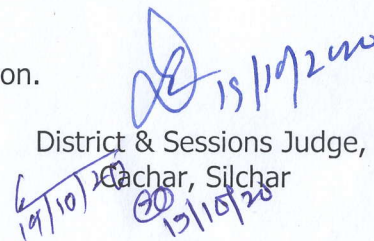 on.
19/10/2020
District & Sessions Judge,
Cachar, Silchar
19/10/20
19/10/20